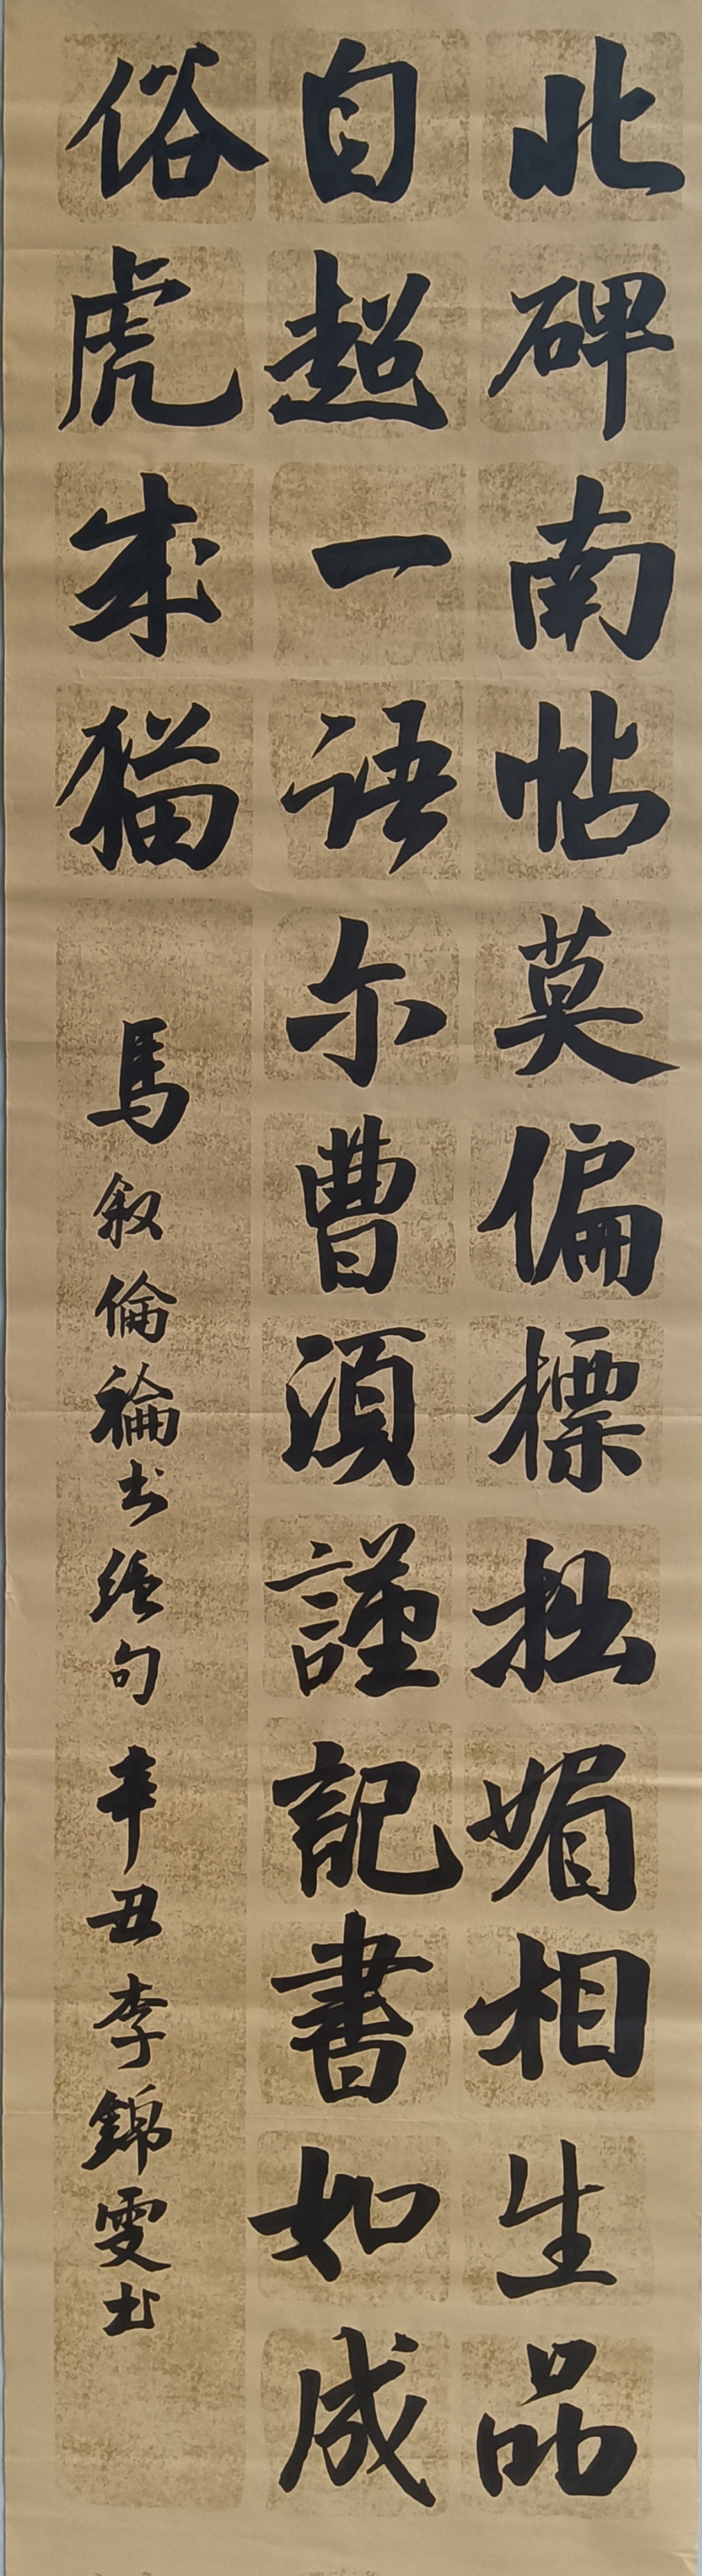 北碑南帖莫偏標拙媚相生品
自超一语尔曹須謹記書如成
俗虎成猫
馬叙倫論书絕句 辛丑李錦雯书